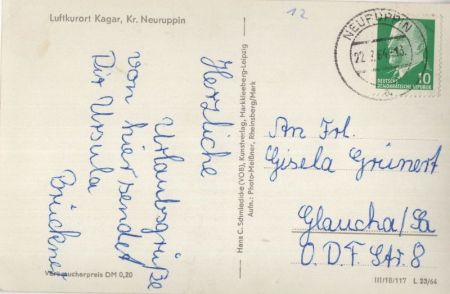 Luftkurort Kagar, Kr. Neuruppin
12
Herzliche
Urlaubsgrüße
von hier sendet
Dir Ursula
Brückner
Verbraucherpreis DM 0,20
Hans C. Schmiedicke (VOB), Kunstverlag, Markkleeberg-Leipzig
Aufn.: Photo-Meißner, Rheinsberg/Mark
NEURUPPIN
10
DEUTSCHE
DEMOKRATISCHE REPUBLIK
An Frl.
Gisela Grünert
Glaucha/Sa
O.D.F. Str. 8
III/18/117 L 23/64